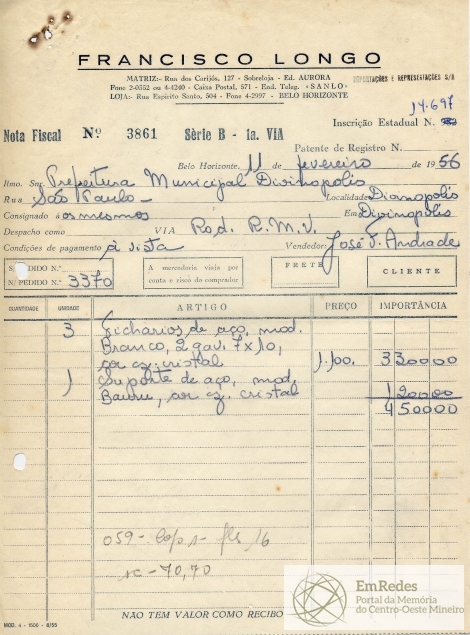 FRANCISCO LONGO
MATRIZ:- Rua dos Carijós, 127 - Sobreloja - Ed. AURORA
IMPORTAÇÕES E REPRESENTAÇÕES S/A
Fone 2-0552 ou 4-4240 - Caixa Postal, 571 - End. Teleg. «SANLO»
LOJA:- Rua Espírito Santo, 504 - Fone 4-2997 - BELO HORIZONTE
14-697
Inscrição Estadual N.
Nota Fiscal Nº 3861 Série B - 1a. VIA
Patente de Registro N.
Belo Horizonte, 11 de fevereiro de 1956
Ilmo. Snr. Prefeitura Municipal Divinopolis
Rua São Paulo - Localidade Divinopolis
Consignado à os mesmos Em Divinopolis
Despacho como VIA Rod. R.M.V.
Condições de pagamento à vista Vendedor: José J. Andrade
S/PEDIDO N.º
N/PEDIDO N.º 3370
A mercadoria viaja por conta e risco do comprador
FRETE
CLIENTE
QUANTIDADE UNIDADE ARTIGO PREÇO IMPORTÂNCIA
3 Ficharios de aço, mod.
Branco, 2 gav. 7x10,
cor cz. cristal 1.100, 330000
1 Suporte de aço, mod.
Bauru, cor cz. cristal 120000
450000
059 - fls 16
70,70
NÃO TEM VALOR COMO RECIBO
MOD. 4 - 1500 - 8/55
EmRedes
Portal da Memória
do Centro-Oeste Mineiro